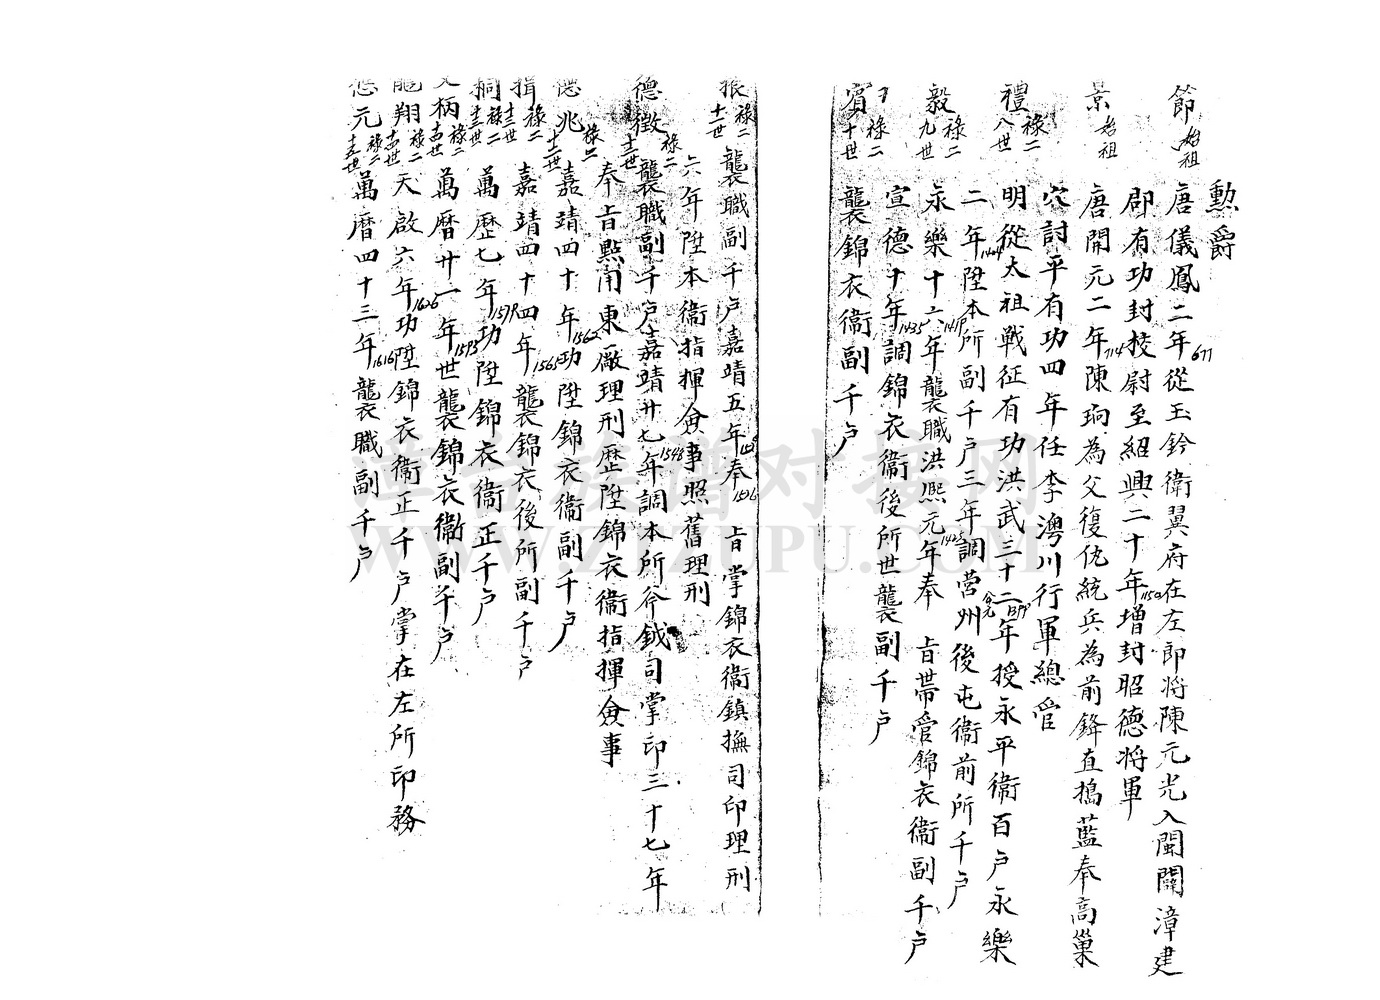 勳爵
節 始祖 唐儀鳳二年677從玉鈐衛翼府在左即將陳元光入閩開漳建
郡有功封校尉至紹興二十年1150增封昭德將軍
景 始祖 唐開元二年714陳珦為父復仇統兵為前鋒直搗藍奉高巢
穴討平有功四年任李澳川行軍總管
禮 祿二 八世 明從太祖戰征有功洪武三十二年公元1399授永平衛百戶永樂
二年1404陞本所副千戶三年調營州後屯衛前所千戶
毅 祿二 九世 永樂十六年1419襲職洪熙元年1425奉 旨帶管錦衣衛副千戶
宣德十年1435調錦衣衛後所世襲副千戶
賓 祿二 十世 襲錦衣衛副千戶
振 祿二 十一世 襲職副千戶嘉靖五年奉1526 旨掌錦衣衛鎮撫司印理刑
六年陞本衛指揮僉事照舊理刑
德徵 祿二 十二世 襲職副千戶嘉靖廿七年1548調本所斧鉞司掌印三十七年
奉旨點用東廠理刑歷陞錦衣衛指揮僉事
德兆 祿二 十二世 嘉靖四十年1562功陞錦衣衛副千戶
揖 祿二 十三世 嘉靖四十四年1565襲錦衣後所副千戶
桐 祿二 十三世 萬歷七年1579功陞錦衣衛正千戶
文柄 祿二 十四世 萬曆廿一年1593世襲錦衣衛副千戶
龍翔 祿二 十四世 天啟六年1626功陞錦衣衛正千戶掌在左所印務
元 祿二 十五世 萬曆四十三年1616襲職副千戶
漳台族譜对接网
WWW.ZTZUPU.COM